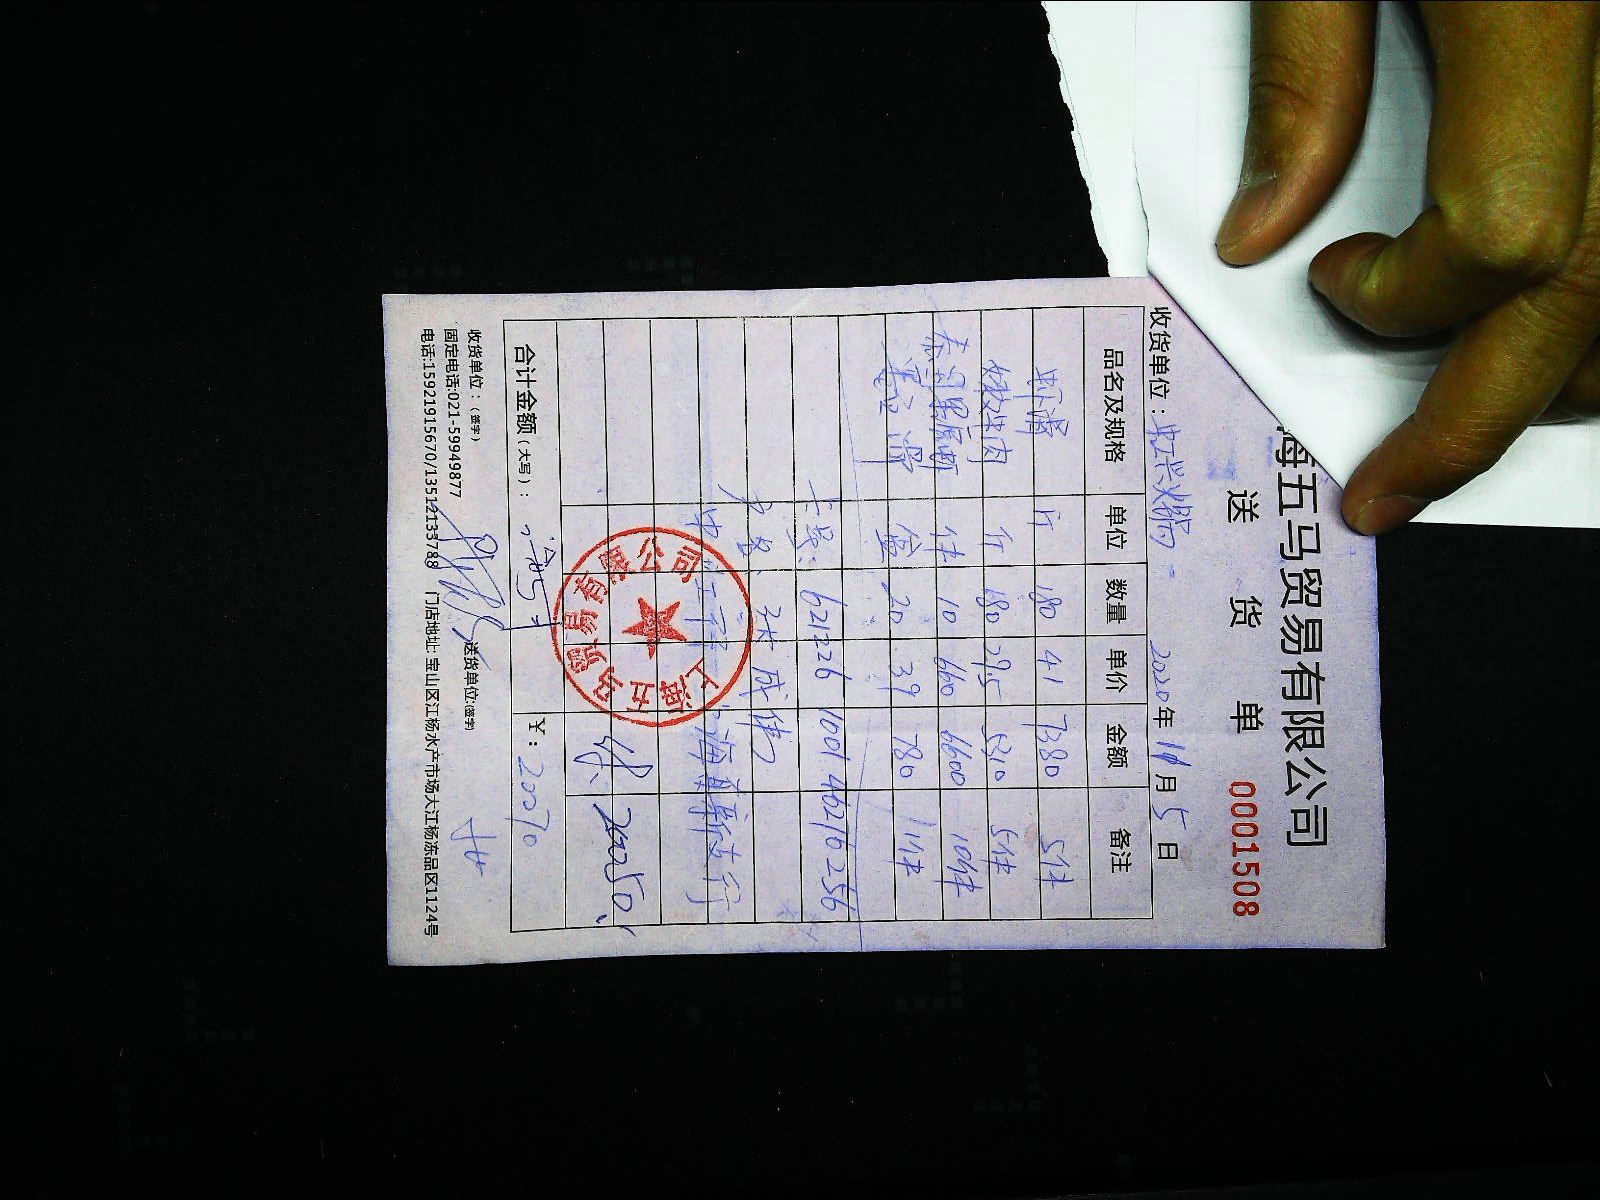 海五马贸易有限公司
送 货 单 0001508
收货单位：虹兴火锅 2020年 11月 5日
品名及规格 单位 数量 单价 金额 备注
虾滑 斤 180 41 7380 5件
嫩牛肉 斤 180 29.5 5310 5件
10 660 6600 10件
盒 20 39 780 1件
卡号: 621226 1001 46216256
户名: 张成伟
中
终: 20050
合计金额（大写）： ¥：20070
收货单位：（签字） 送货单位:(签字)
固定电话:021-59949877
电话:15921915670/13512133788 门店地址: 宝山区江杨水产市场大江杨冻品区1124号
上海五马贸易有限公司